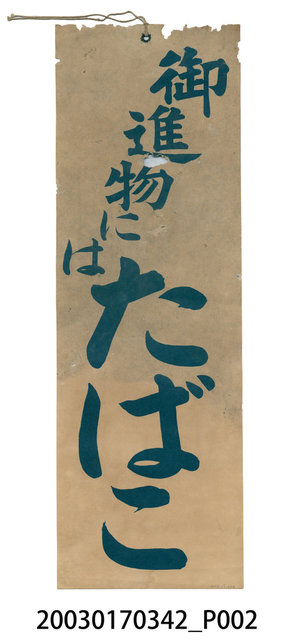 御進物には
たばこ
20030170342_P002